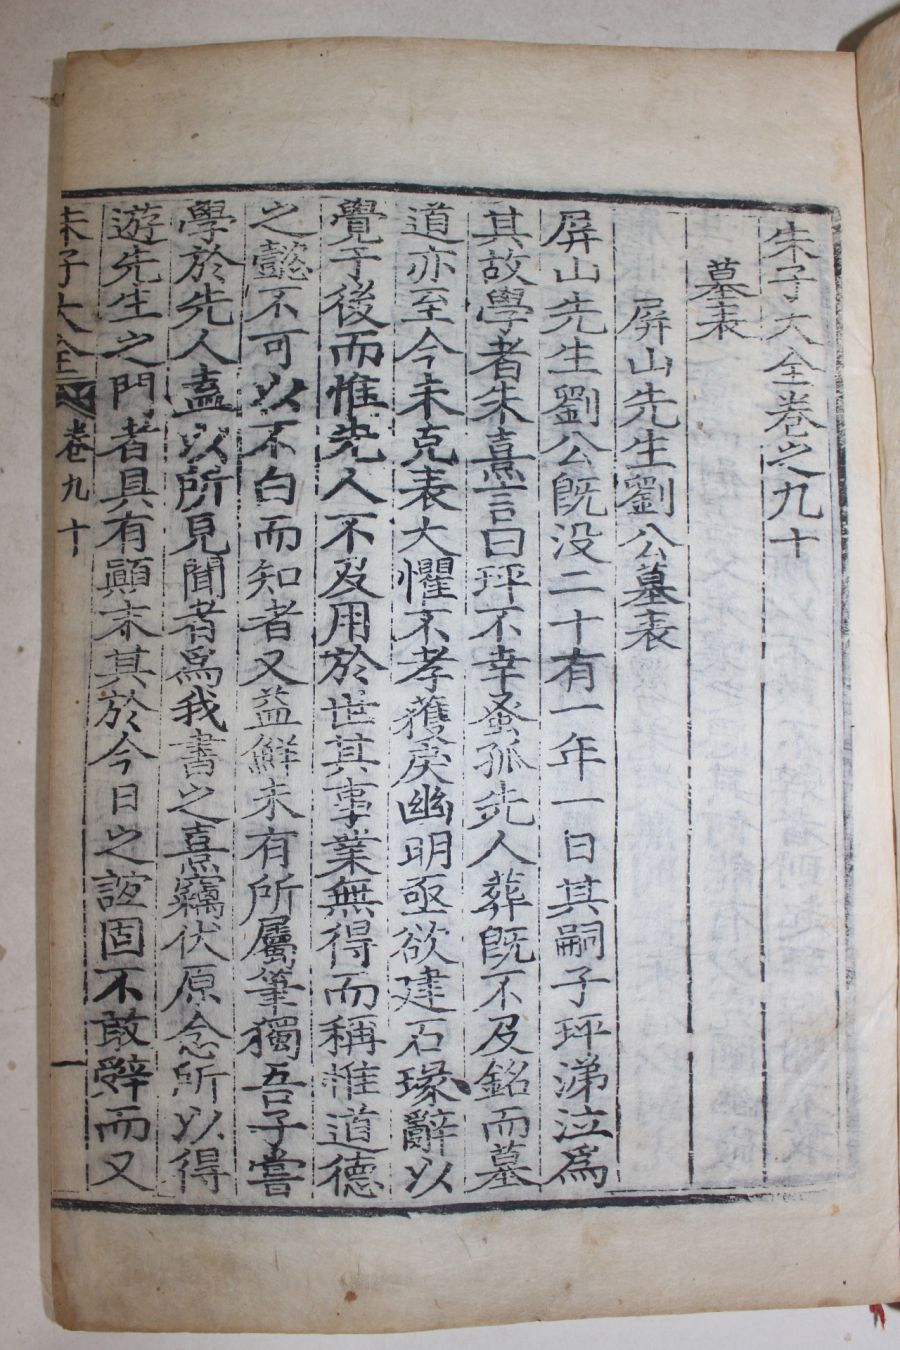 朱子大全卷之九十
墓表
屏山先生劉公墓表
屏山先生劉公既没二十有一年一日其嗣子坪涕泣爲
其故學者朱熹言曰坪不幸蚤孤先人葬既不及銘而墓
道亦至今未克表大懼不孝獲戾幽明亟欲建石瑑辭以
覺于後而惟先人不及用於世其事業無得而稱惟道德
之懿不可以不白而知者又益鮮未有所屬筆獨吾子嘗
學於先人盍以所見聞者爲我書之熹竊伏原念所以得
遊先生之門者具有顚末其於今日之誼固不敢辭而又
朱子大全 卷九十 一